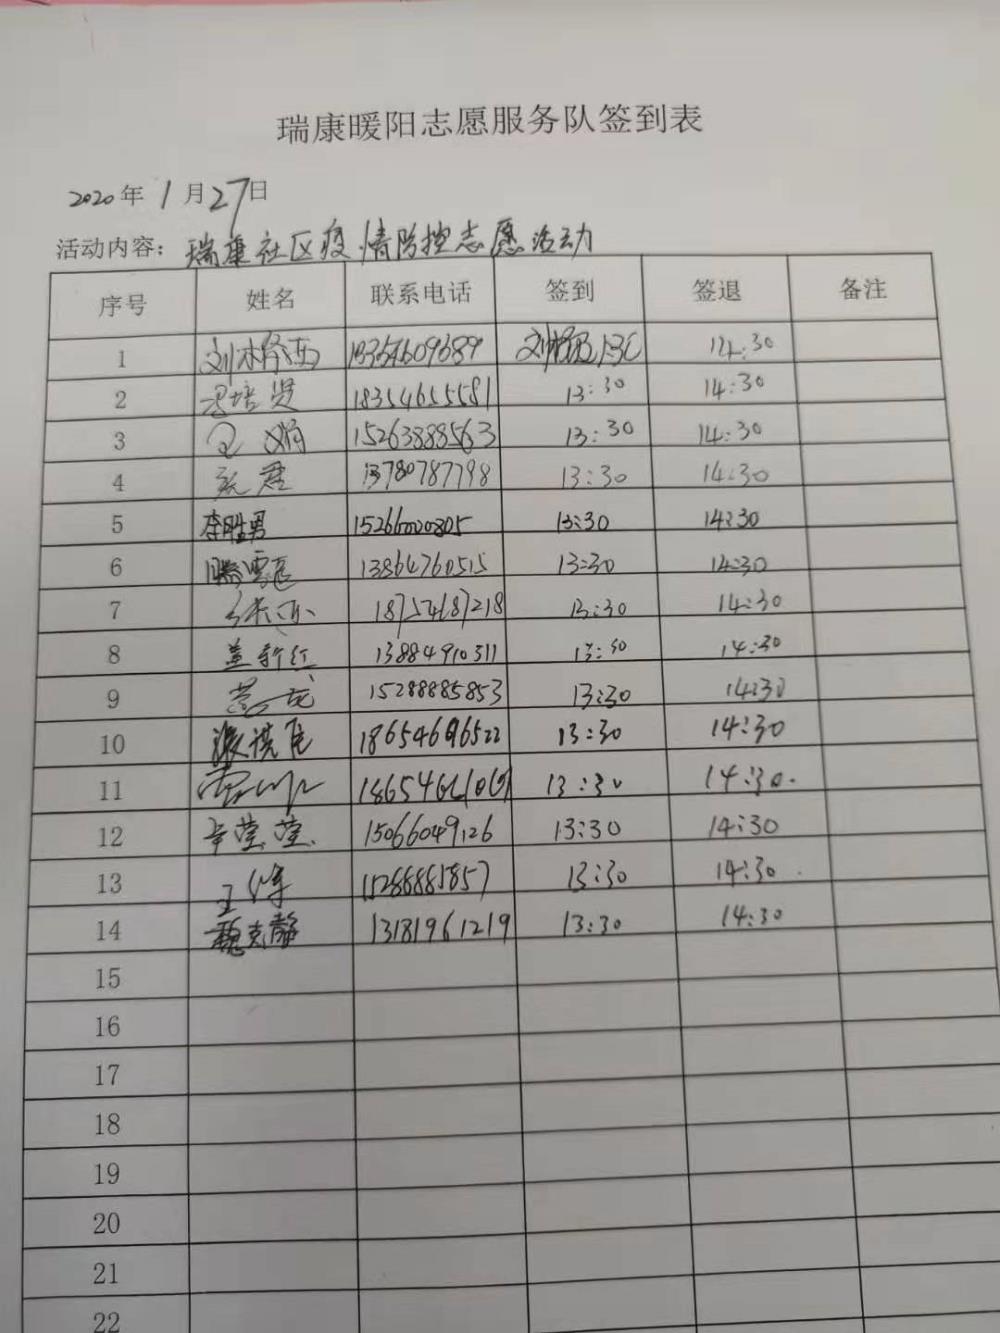 瑞康暖阳志愿服务队签到表
2020年1月27日
活动内容：瑞康社区疫情防控志愿活动
序号 姓名 联系电话 签到 签退 备注
1 刘 14:30
2 18354655581 13:30 14:30
3 15263888563 13:30 14:30
4 13780787798 13:30 14:30
5 李胜男 15266020805 13:30 14:30
6 13864760515 13:30 14:30
7 18754687218 13:30 14:30
8 盖新红 13884910311 13:30 14:30
9 15288885853 13:30 14:30
10 18654696522 13:30 14:30
11 13:30 14:30.
12 辛莹莹 15066049126 13:30 14:30
13 王 13:30 14:30.
14 魏克静 13181961219 13:30 14:30
15
16
17
18
19
20
21
22